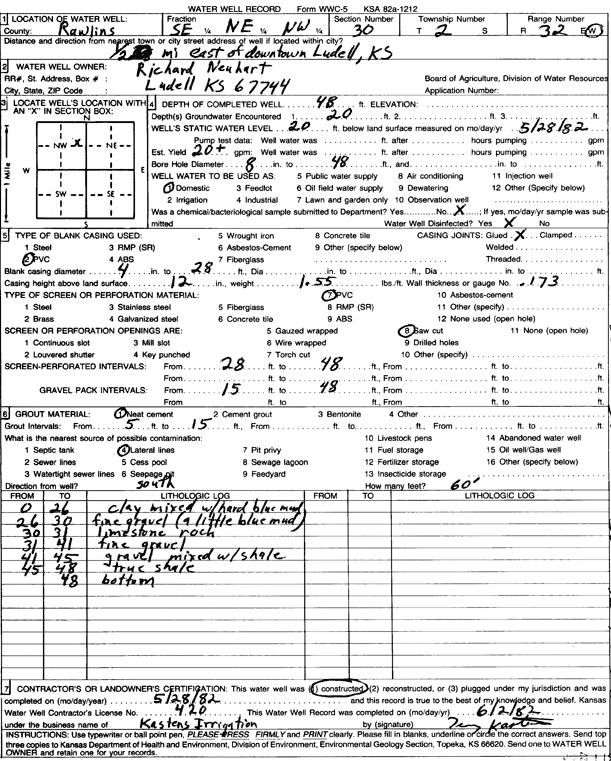 WATER WELL RECORD Form WWC-5 KSA 82a-1212
1 LOCATION OF WATER WELL: Fraction Section Number Township Number Range Number
County: Rawlins SE ¼ NE ¼ NW ¼ 30 T 2 S R 32 E(W)
Distance and direction from nearest town or city street address of well if located within city?
mi east of downtown Ludell, KS
2 WATER WELL OWNER: Richard Neuhart
RR#, St. Address, Box # : Board of Agriculture, Division of Water Resources
City, State, ZIP Code : Ludell KS 67744 Application Number:
3 LOCATE WELL'S LOCATION WITH AN "X" IN SECTION BOX:
N
NW X NE
W E
SW SE
S
1 Mile
4 DEPTH OF COMPLETED WELL 48 ft. ELEVATION:
Depth(s) Groundwater Encountered 1. 20 ft. 2. ft. 3. ft.
WELL'S STATIC WATER LEVEL 20 ft. below land surface measured on mo/day/yr 5/28/82
Pump test data: Well water was ft. after hours pumping gpm
Est. Yield 20+ gpm: Well water was ft. after hours pumping gpm
Bore Hole Diameter 8 in. to 48 ft., and in. to ft.
WELL WATER TO BE USED AS: 5 Public water supply 8 Air conditioning 11 Injection well
1 Domestic 3 Feedlot 6 Oil field water supply 9 Dewatering 12 Other (Specify below)
2 Irrigation 4 Industrial 7 Lawn and garden only 10 Observation well
Was a chemical/bacteriological sample submitted to Department? Yes No X ; If yes, mo/day/yr sample was submitted
Water Well Disinfected? Yes X No
5 TYPE OF BLANK CASING USED: 5 Wrought iron 8 Concrete tile CASING JOINTS: Glued X Clamped
1 Steel 3 RMP (SR) 6 Asbestos-Cement 9 Other (specify below) Welded
2 PVC 4 ABS 7 Fiberglass Threaded
Blank casing diameter 4 in. to 28 ft., Dia in. to ft., Dia in. to ft.
Casing height above land surface 12 in., weight 1.55 lbs./ft. Wall thickness or gauge No. .173
TYPE OF SCREEN OR PERFORATION MATERIAL: 7 PVC 10 Asbestos-cement
1 Steel 3 Stainless steel 5 Fiberglass 8 RMP (SR) 11 Other (specify)
2 Brass 4 Galvanized steel 6 Concrete tile 9 ABS 12 None used (open hole)
SCREEN OR PERFORATION OPENINGS ARE: 5 Gauzed wrapped 8 Saw cut 11 None (open hole)
1 Continuous slot 3 Mill slot 6 Wire wrapped 9 Drilled holes
2 Louvered shutter 4 Key punched 7 Torch cut 10 Other (specify)
SCREEN-PERFORATED INTERVALS: From 28 ft. to 48 ft., From ft. to ft.
From ft. to ft., From ft. to ft.
GRAVEL PACK INTERVALS: From 15 ft. to 48 ft., From ft. to ft.
From ft. to ft., From ft. to ft.
6 GROUT MATERIAL: 1 Neat cement 2 Cement grout 3 Bentonite 4 Other
Grout Intervals: From 5 ft. to 15 ft., From ft. to ft., From ft. to ft.
What is the nearest source of possible contamination: 10 Livestock pens 14 Abandoned water well
1 Septic tank 4 Lateral lines 7 Pit privy 11 Fuel storage 15 Oil well/Gas well
2 Sewer lines 5 Cess pool 8 Sewage lagoon 12 Fertilizer storage 16 Other (specify below)
3 Watertight sewer lines 6 Seepage pit 9 Feedyard 13 Insecticide storage
Direction from well? south How many feet? 60
FROM TO LITHOLOGIC LOG FROM TO LITHOLOGIC LOG
0 26 clay mixed w/hard blue mud
26 30 fine gravel (a little blue mud)
30 31 limestone rock
31 41 fine gravel
41 45 gravel mixed w/shale
45 48 true shale
48 bottom
7 CONTRACTOR'S OR LANDOWNER'S CERTIFICATION: This water well was (1) constructed, (2) reconstructed, or (3) plugged under my jurisdiction and was
completed on (mo/day/year) 5/28/82 and this record is true to the best of my knowledge and belief. Kansas
Water Well Contractor's License No. 420 This Water Well Record was completed on (mo/day/yr) 6/2/82
under the business name of Kastens Irrigation by (signature)
INSTRUCTIONS: Use typewriter or ball point pen, PLEASE PRESS FIRMLY and PRINT clearly. Please fill in blanks, underline or circle the correct answers. Send top
three copies to Kansas Department of Health and Environment, Division of Environment, Environmental Geology Section, Topeka, KS 66620. Send one to WATER WELL
OWNER and retain one for your records.